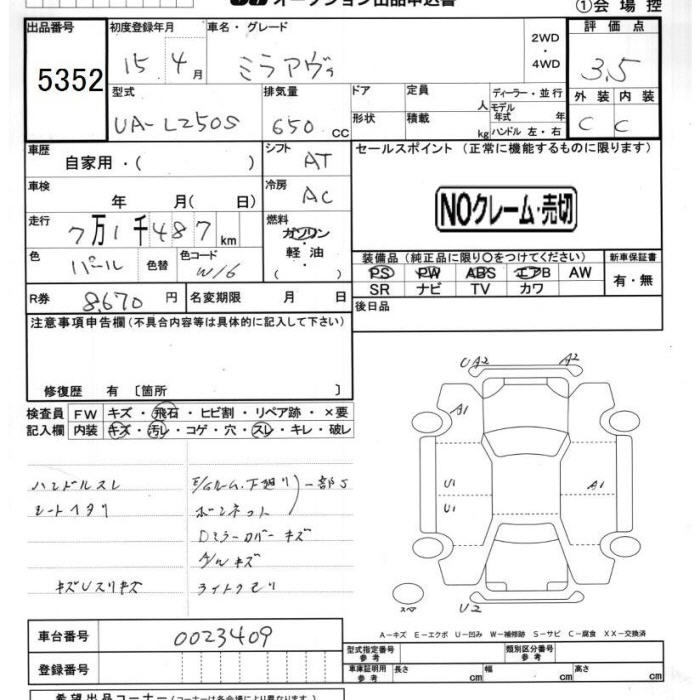 オークション出品申込書
①会場控
出品番号 初度登録年月 車名・グレード 2WD・4WD 評価点
5352 15年 4月 ミラアヴィ 3.5
型式 排気量 ドア 定員 人 ディーラー・並行 外装 内装
UA-L250S 650 cc 形状 積載 kg モデル年式 年 ハンドル 左・右 C C
車歴 自家用・( ) シフト AT セールスポイント (正常に機能するものに限ります)
車検 年 月( 日) 冷房 AC
NOクレーム・売切
走行 7万1千487km 燃料 ガソリン・軽油・( )
色 パール 色替 色コード W16
装備品 (純正品に限り○をつけてください) 新車保証書
PS PW ABS エアB AW 有・無
SR ナビ TV カワ
R券 8,670円 名変期限 月 日 後日品
注意事項申告欄(不具合内容等は具体的に記入して下さい)
修復歴 有 [箇所 ]
検査員 FW キズ・飛石・ヒビ割・リペア跡・×要
記入欄 内装 キズ・汚レ・コゲ・穴・スレ・キレ・破レ
ハンドルスレ E/Gルーム、下廻リ 一部S
シートヘタリ ボンネット
Dミラーカバーキズ
A/Wキズ
キズUスリキズ ライトクモリ
UA2 A2
A1
U1 A1
U1
スペア U2
A-キズ E-エクボ U-凹み W-補修跡 S-サビ C-腐食 XX-交換済
車台番号 0023409
型式指定番号 参考 類別区分番号 参考
登録番号 車庫証明用 参考 長さ cm 幅 cm 高さ cm
希望出品コーナー(コーナーは各会場により異なります)